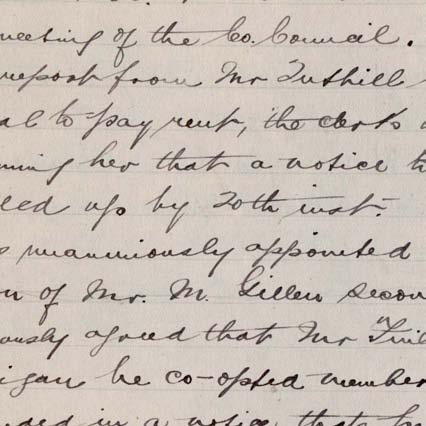 meeting of the Co. Council.
report from Mr Tuthill
al to pay rent, the clerk
ing her that a notice to
ed up by 20th inst.
unanimously appointed
on of Mr. M. Gillen secon
ously agreed that Mr
igan be co-opted member
ded in a notice that